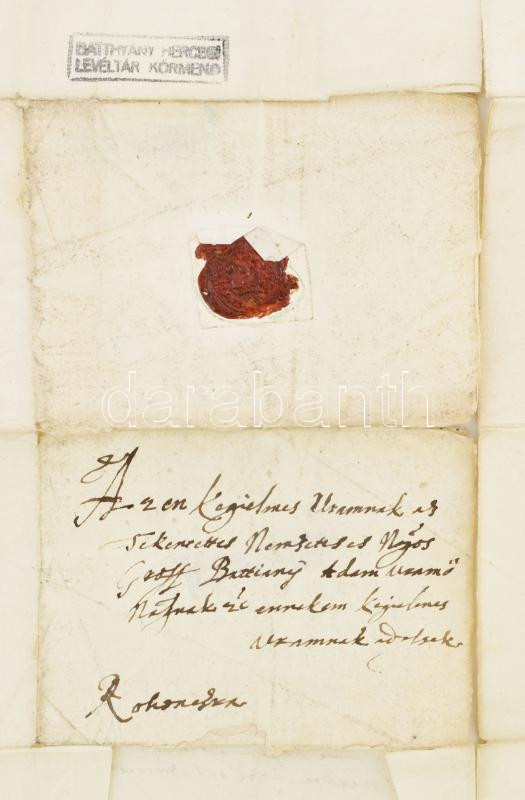 BATTHYÁNY HERCEGI
LEVÉLTÁR KÖRMEND
darabanth
Az en Kegielmes Uramnak az
Tekentetes Nemzetes es Ngos
Groff Battiany Adam Uramó
Nagnak etc ennekem Kegielmes
Uramnak adassek
Rohonczra